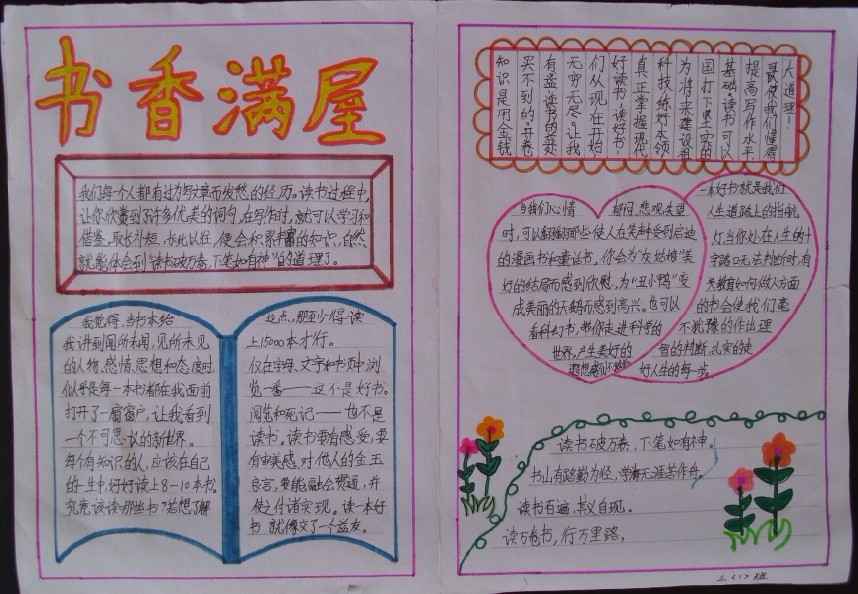 书香满屋
我们每个人都有过为写文章而发愁的经历。读书过程中,
让你欣赏到了许多优美的词句,在写作时,就可以学习和
借鉴,取长补短,长此以往,便会积累丰富的知识,自然
就能体会到“读书破万卷,下笔如有神”的道理了。
我觉得,当书本给
我讲到闻所未闻,见所未见
的人物、感情、思想和态度时
似乎是每一本书都在我面前
打开了一扇窗户,让我看到
一个不可思议的新世界。
每个有知识的人,应该在自己
的一生中,好好读上8-10本书。
究竟该读哪些书?若想了解
这点,那至少得读
上15000本才行。
仅在字母、文字和书页中浏
览一番——这个是好书。
阅览和死记——也不是
读书。读书要有感受,要
有审美感,对他人的金玉
良言,要能融会贯通,并
使之付诸实现。读一本好
书,就像交了一个益友。
大道理!
哥使我们懂得
提高写作水平
基础。读书可以
国打下坚实的
为将来建设祖
科技,练好本领
真正掌握现代
好读书,读好书!
们从现在开始
无穷无尽。让我
有益,读书的益处
买不到的。开卷
知识是用金钱
当我们心情
郁闷、悲观、失望
时,可以翻翻那些使人在笑声中受到启迪
的漫画书和童话书。你会为“灰姑娘”美
好的结局而感到欣慰,为“丑小鸭”变
成美丽的天鹅而感到高兴。也可以
看科幻书,带你走进科学的
世界,产生美好的
遐想感到不
一本好书就是我们
人生道路上的指航
灯,当你处在人生的十
字路口无法判断时,有
关教育如何做人方面
的书会使我们毫
不犹豫的作出理
智的判断,扎实的走
好人生的每一步。
读书破万卷,下笔如有神。
书山有路勤为径,学海无涯苦作舟。
读书百遍,其义自现。
读万卷书,行万里路。
三(1)班